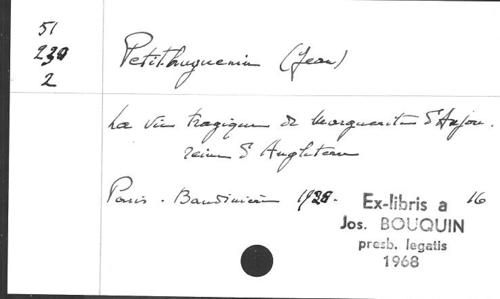 51
230
2
Petithuguenin (Jean)
La vie tragique de Marguerite d'Anjou.
reine d'Angleterre
Paris. Baudinière 1928. 16
Ex-libris a
Jos. BOUQUIN
presb. legatis
1968